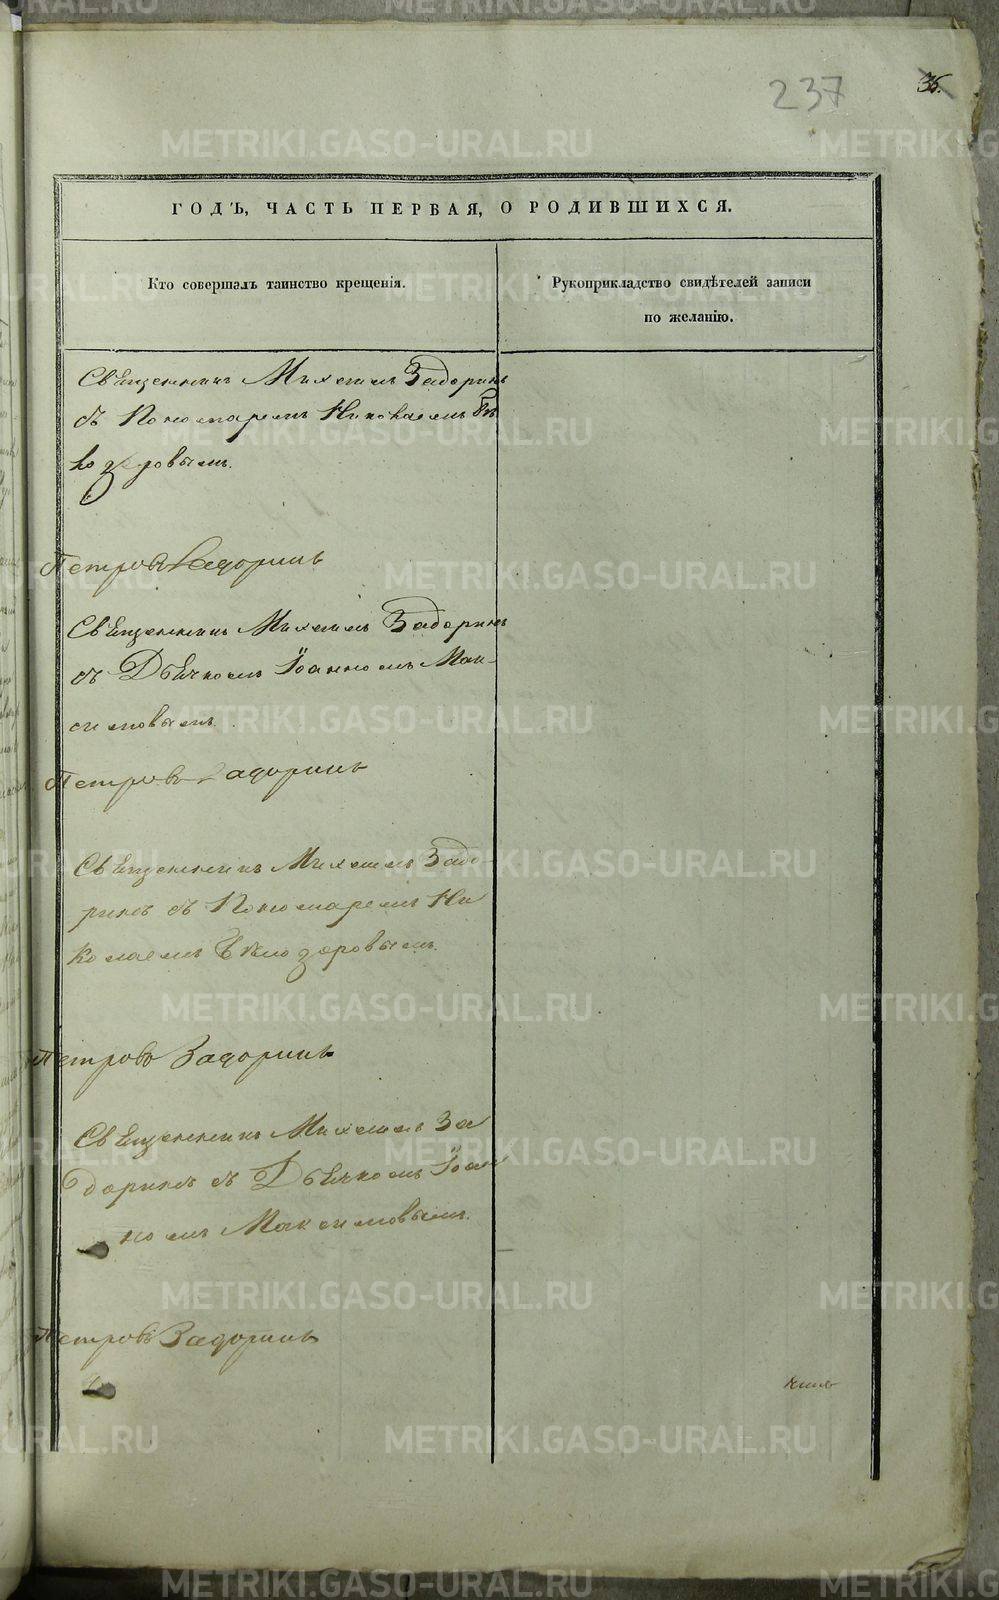 237
36.
ГОДЪ, ЧАСТЬ ПЕРВАЯ, О РОДИВШИХСЯ.
Кто совершалъ таинство крещенія.
Рукоприкладство свидѣтелей записи
по желанію.
Священникъ Михаилъ Задоринъ
съ Пономаремъ Николаемъ Бѣ
лозеровымъ.
Петровъ Задоринъ
Священникъ Михаилъ Задоринъ
съ Дьячкомъ Іоанномъ Мак-
симовымъ.
Петровъ Задоринъ
Священникъ Михаилъ Задо-
ринъ съ Пономаремъ Ни
колаемъ Бѣлозеровымъ.
Петровъ Задоринъ
Священникъ Михаилъ За
доринъ съ Дьячкомъ Іоан
номъ Максимовымъ.
Петровъ Задоринъ
METRIKI.GASO-URAL.RU